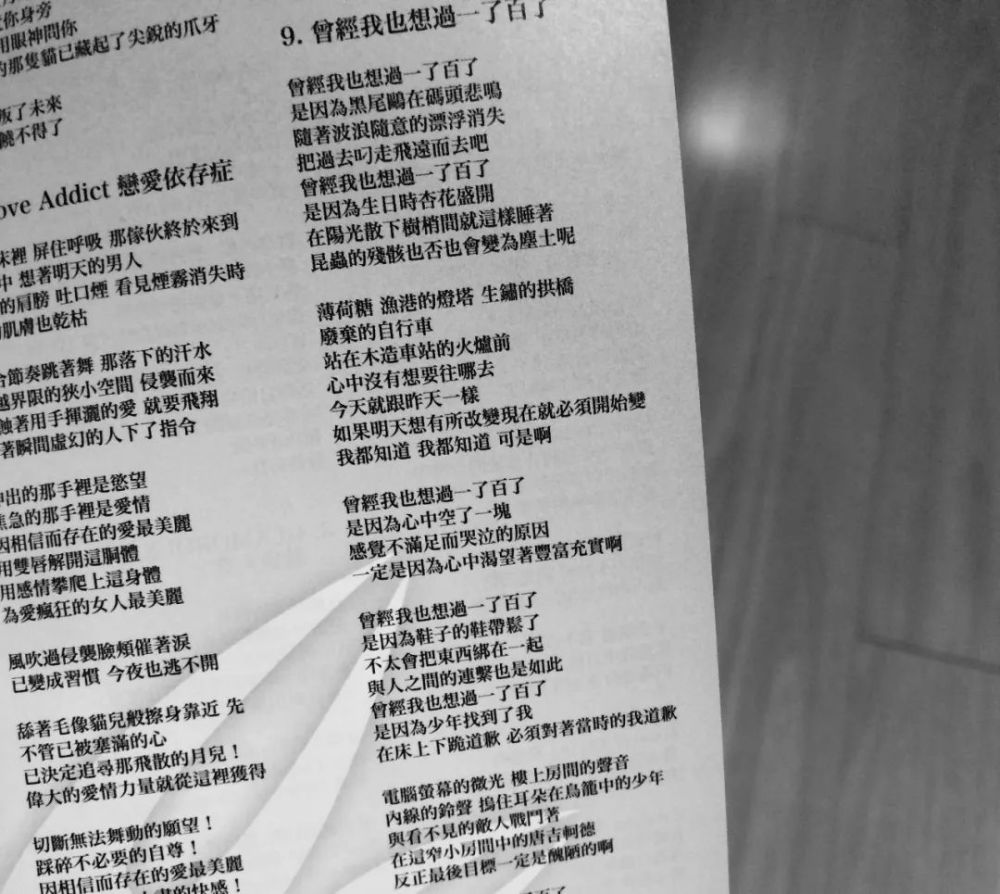 你身旁
用眼神問你
的那隻貓已藏起了尖銳的爪牙
叛了未來
饒不得了
ove Addict 戀愛依存症
床裡 屏住呼吸 那傢伙終於來到
中 想著明天的男人
的肩膀 吐口煙 看見煙霧消失時
肌膚也乾枯
合節奏跳著舞 那落下的汗水
越界限的狹小空間 侵襲而來
蝕著用手揮灑的愛 就要飛翔
著瞬間虛幻的人下了指令
伸出的那手裡是慾望
焦急的那手裡是愛情
因相信而存在的愛最美麗
用雙唇解開這胴體
用感情攀爬上這身體
為愛瘋狂的女人最美麗
風吹過侵襲臉頰催著淚
已變成習慣 今夜也逃不開
舔著毛像貓兒般擦身靠近 先
不管已被塞滿的心
已決定追尋那飛散的月兒！
偉大的愛情力量就從這裡獲得
切斷無法舞動的願望！
踩碎不必要的自尊！
因相信而存在的愛最美麗
的快感！
9. 曾經我也想過一了百了
曾經我也想過一了百了
是因為黑尾鷗在碼頭悲鳴
隨著波浪隨意的漂浮消失
把過去叼走飛遠而去吧
曾經我也想過一了百了
是因為生日時杏花盛開
在陽光散下樹梢間就這樣睡著
昆蟲的殘骸也否也會變為塵土呢
薄荷糖 漁港的燈塔 生鏽的拱橋
廢棄的自行車
站在木造車站的火爐前
心中沒有想要往哪去
今天就跟昨天一樣
如果明天想有所改變現在就必須開始變
我都知道 我都知道 可是啊
曾經我也想過一了百了
是因為心中空了一塊
感覺不滿足而哭泣的原因
一定是因為心中渴望著豐富充實啊
曾經我也想過一了百了
是因為鞋子的鞋帶鬆了
不太會把東西綁在一起
與人之間的連繫也是如此
曾經我也想過一了百了
是因為少年找到了我
在床上下跪道歉 必須對著當時的我道歉
電腦螢幕的微光 樓上房間的聲音
內線的鈴聲 摀住耳朵在鳥籠中的少年
與看不見的敵人戰鬥著
在這窄小房間中的唐吉軻德
反正最後目標一定是醜陋的啊